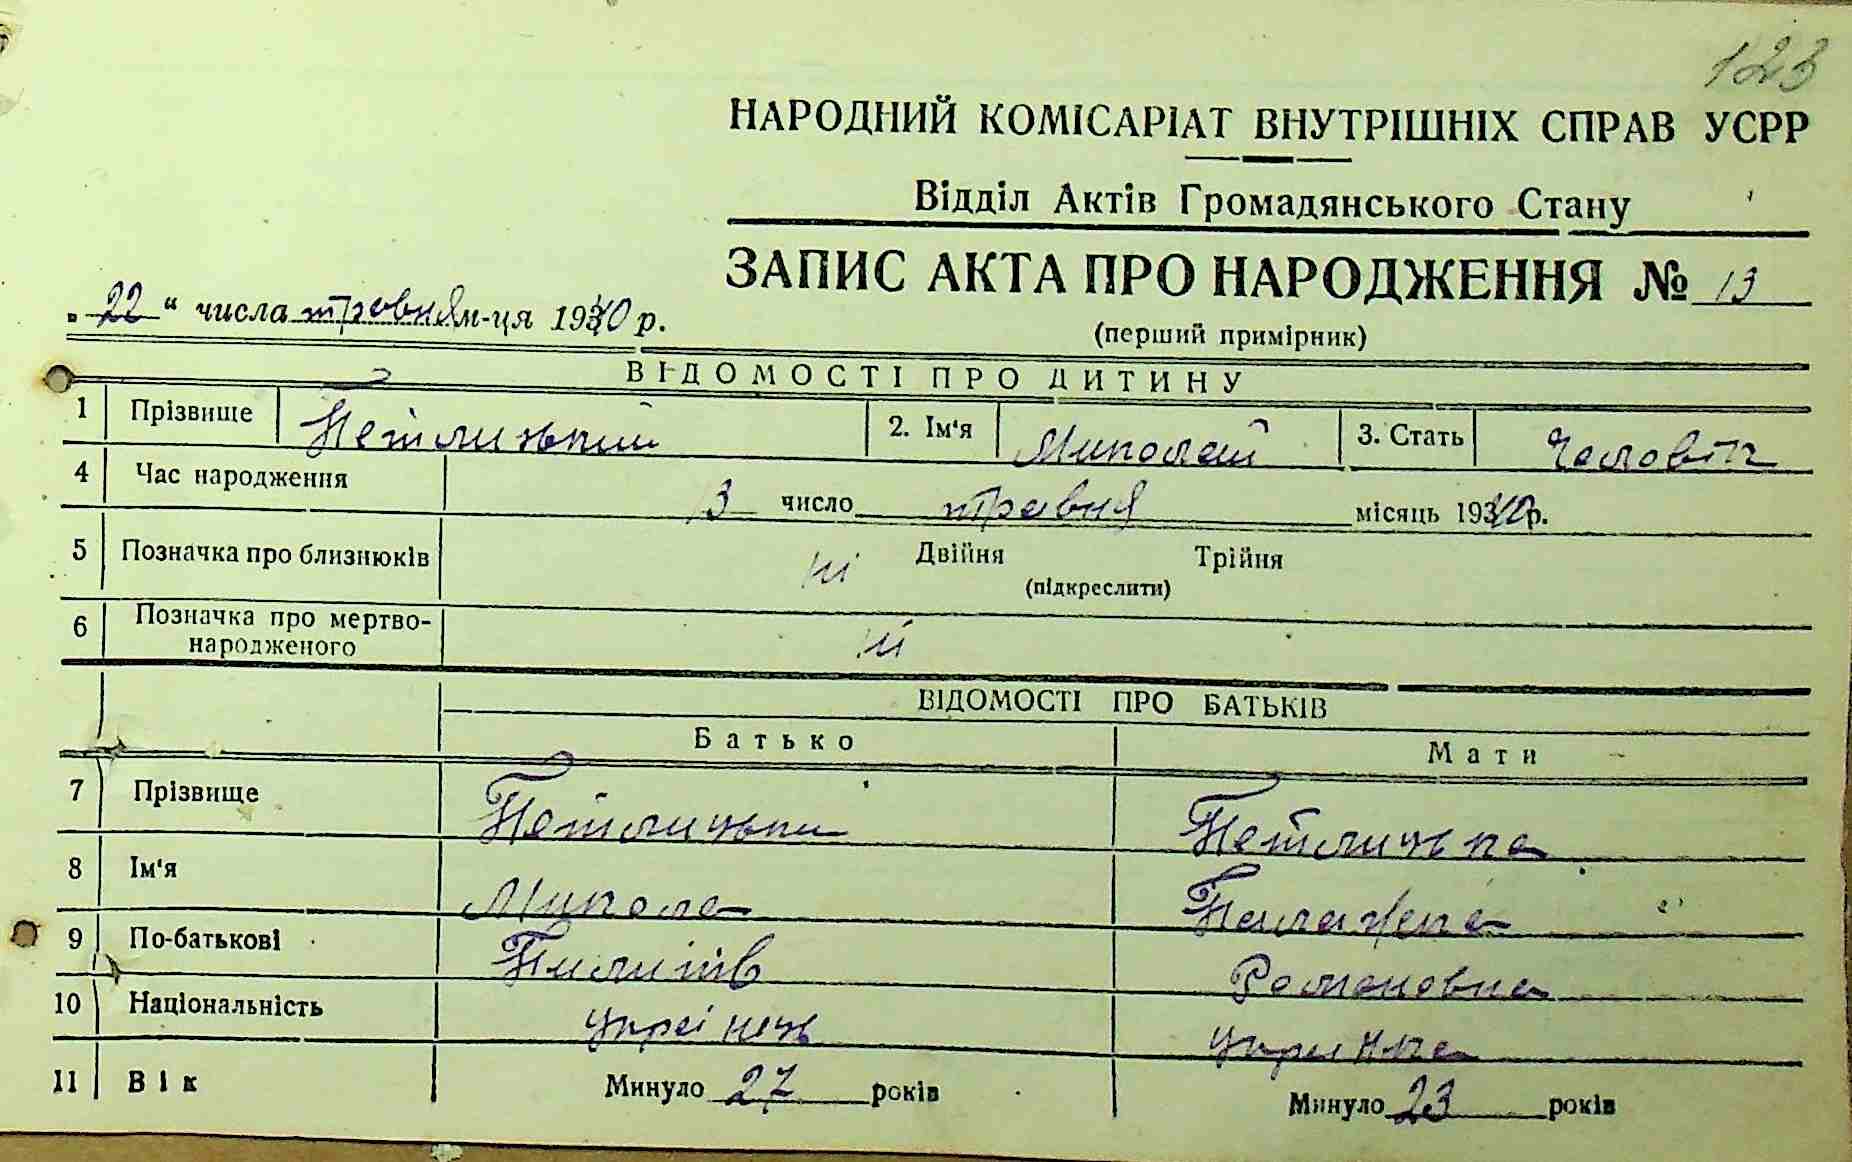 123
НАРОДНИЙ КОМІСАРІАТ ВНУТРІШНІХ СПРАВ УСРР
Відділ Актів Громадянського Стану
ЗАПИС АКТА ПРО НАРОДЖЕННЯ № 13
„22“ числа травня м-ця 1940 р.
(перший примірник)
ВІДОМОСТІ ПРО ДИТИНУ
1 Прізвище 2. Ім'я Миколай 3. Стать Чоловік
4 Час народження 13 число травня місяць 1940 р.
5 Позначка про близнюків ні Двійня Трійня
(підкреслити)
6 Позначка про мертво-
народженого ні
ВІДОМОСТІ ПРО БАТЬКІВ
Батько Мати
7 Прізвище
8 Ім'я Микола
9 По-батькові Пилипів Романовна
10 Національність
11 Вік Минуло 27 років Минуло 23 років